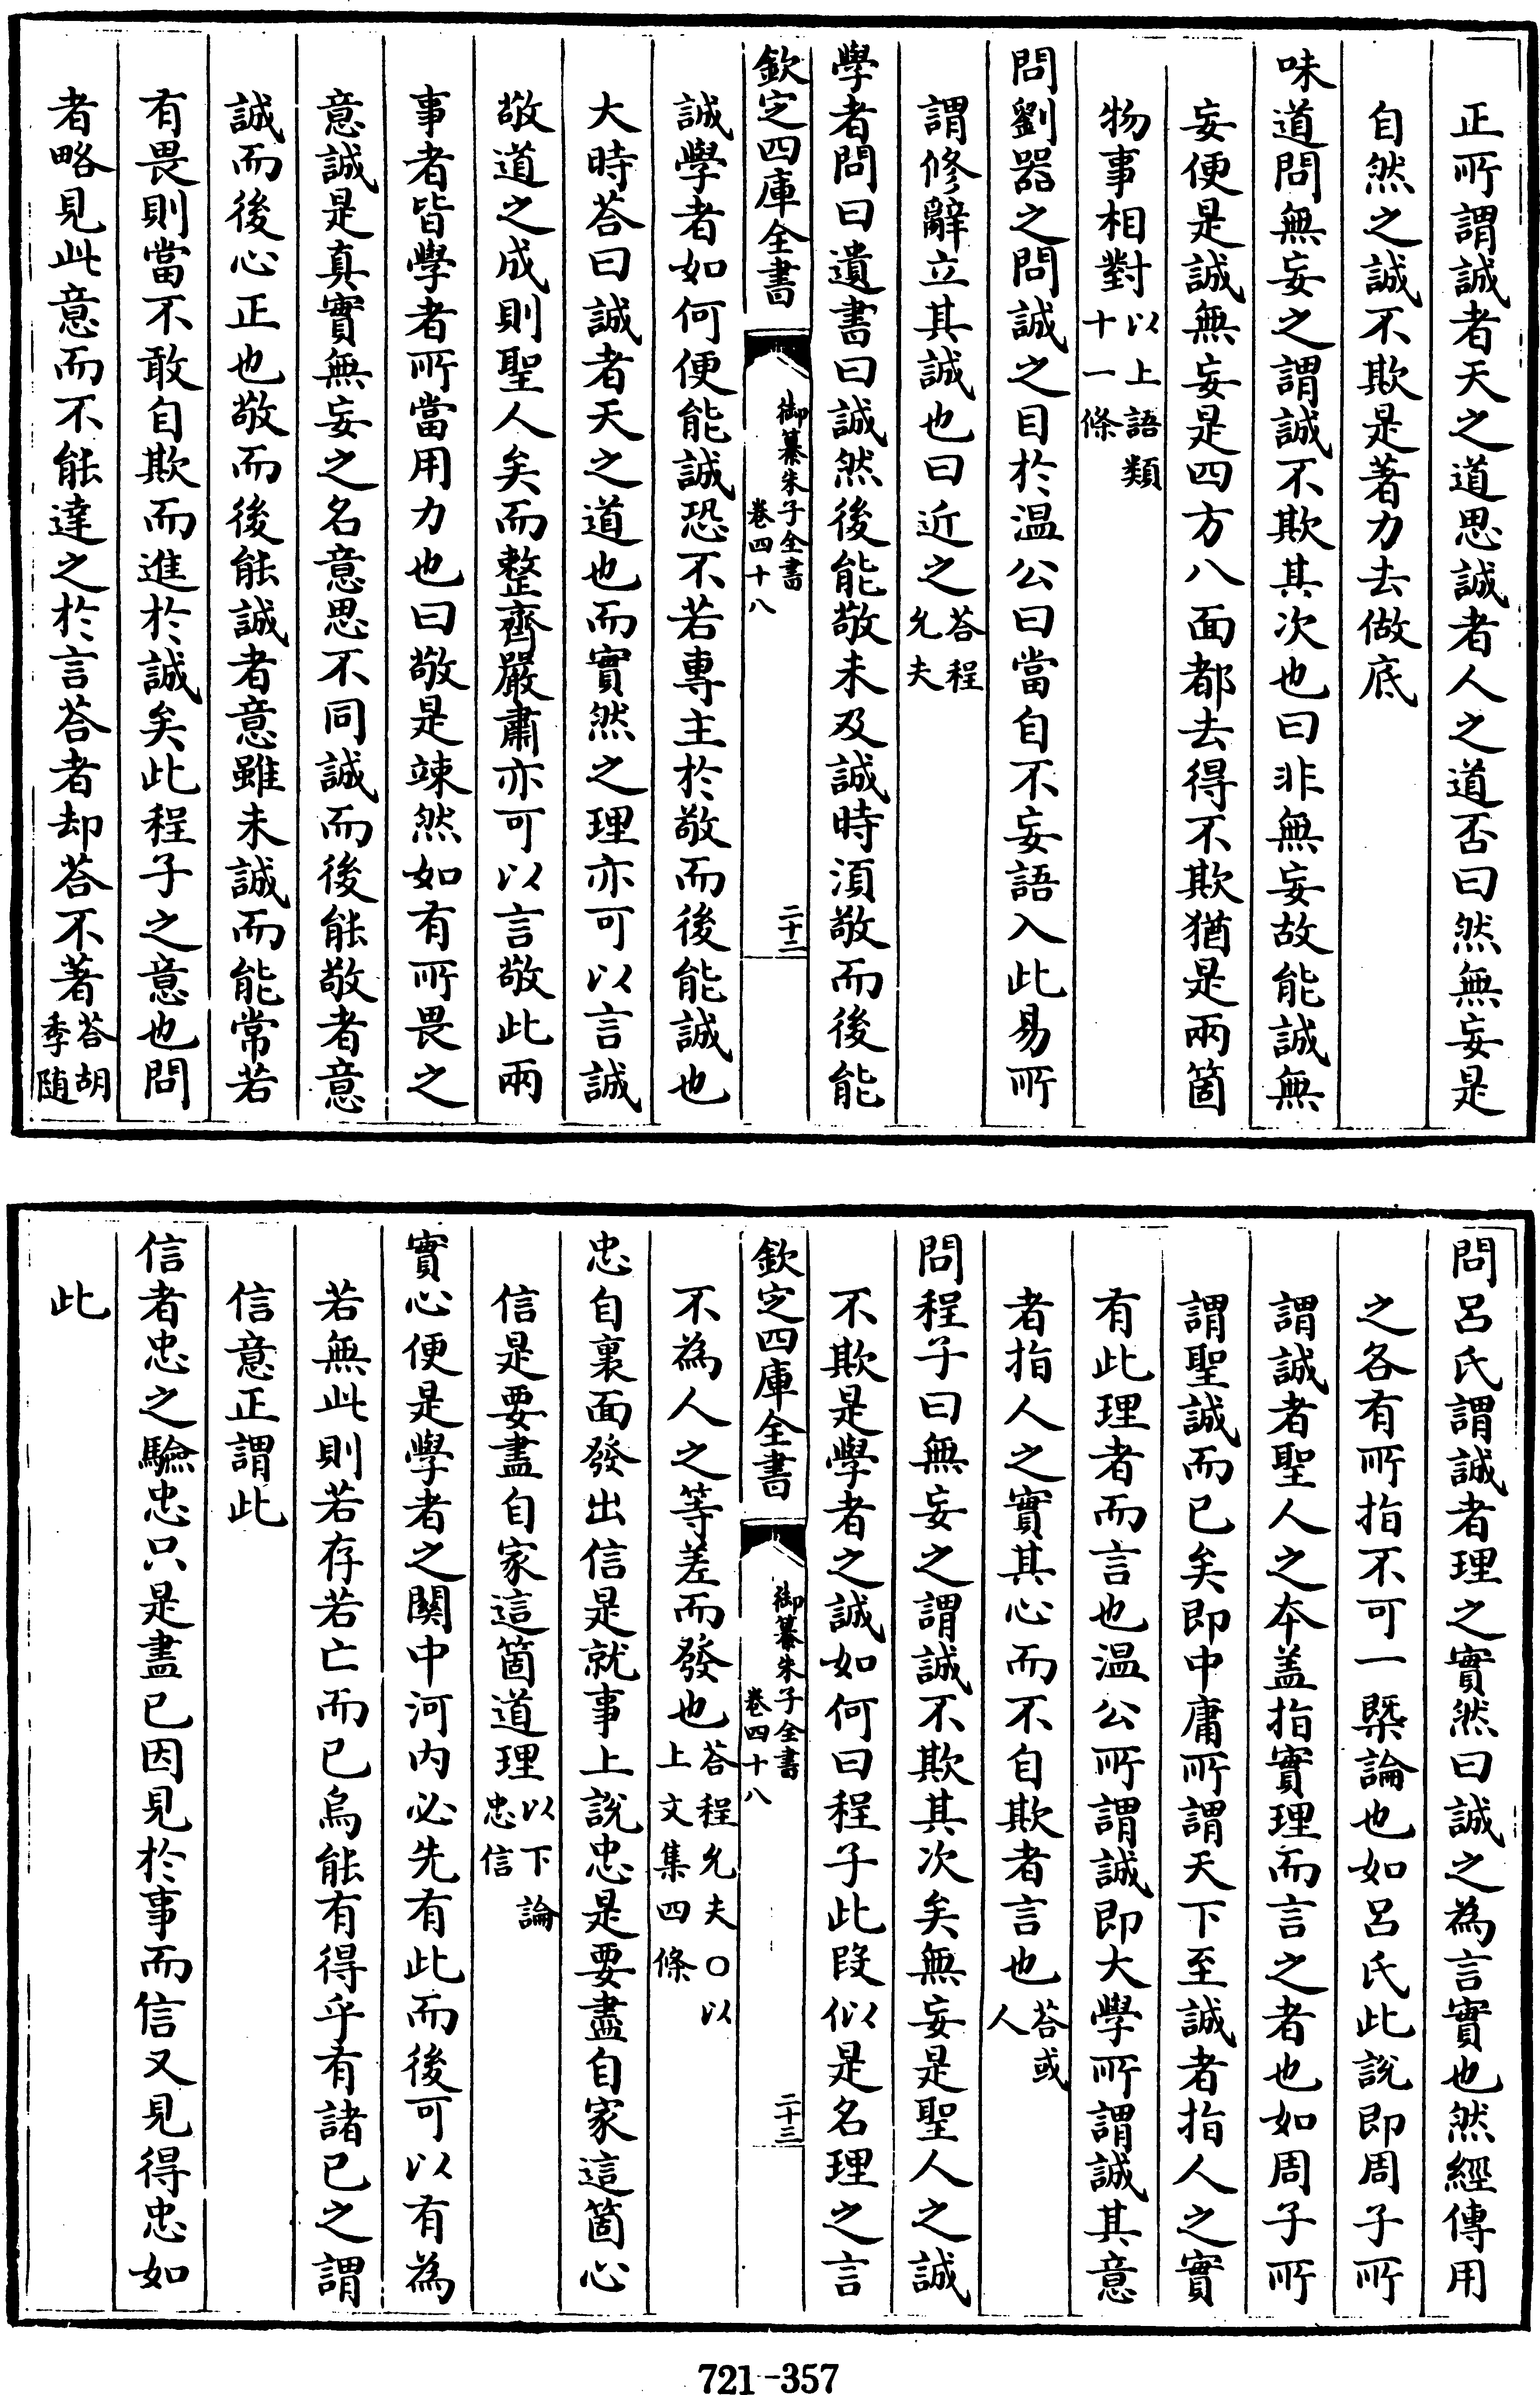 正所謂誠者天之道思誠者人之道否曰然無妄是
自然之誠不欺是著力去做底
味道問無妄之謂誠不欺其次也曰非無妄故能誠無
妄便是誠無妄是四方八面都去得不欺猶是兩箇
物事相對以上語類十一條
問劉器之問誠之目於温公曰當自不妄語入此易所
謂修辭立其誠也曰近之荅程允夫
學者問曰遺書曰誠然後能敬未及誠時湏敬而後能
欽定四庫全書
御纂朱子全書
卷四十八
二十二
誠學者如何便能誠恐不若專主於敬而後能誠也
大時荅曰誠者天之道也而實然之理亦可以言誠
敬道之成則聖人矣而整齊嚴肅亦可以言敬此兩
事者皆學者所當用力也曰敬是竦然如有所畏之
意誠是真實無妄之名意思不同誠而後能敬者意
誠而後心正也敬而後能誠者意雖未誠而能常若
有畏則當不敢自欺而進於誠矣此程子之意也問
者略見此意而不能達之於言荅者却荅不著荅胡季随
問呂氏謂誠者理之實然曰誠之為言實也然經傳用
之各有所指不可一槩論也如呂氏此説即周子所
謂誠者聖人之本盖指實理而言之者也如周子所
謂聖誠而已矣即中庸所謂天下至誠者指人之實
有此理者而言也温公所謂誠即大學所謂誠其意
者指人之實其心而不自欺者言也荅或人
問程子曰無妄之謂誠不欺其次矣無妄是聖人之誠
不欺是學者之誠如何曰程子此段似是名理之言
欽定四庫全書
御纂朱子全書
卷四十八
二十三
不為人之等差而發也荅程允夫○以上文集四條
忠自裏面發出信是就事上説忠是要盡自家這箇心
信是要盡自家這箇道理以下論忠信
實心便是學者之關中河内必先有此而後可以有為
若無此則若存若亡而已烏能有得乎有諸已之謂
信意正謂此
信者忠之驗忠只是盡已因見於事而信又見得忠如
此
721-357